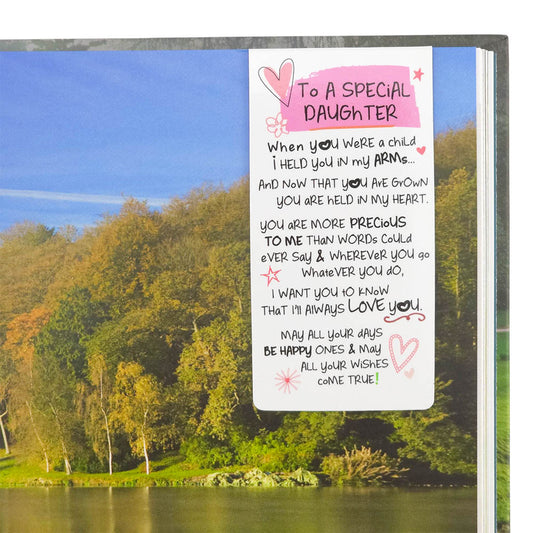 To A SPECiAL
DAUGhTER
When you WeRE a child
i HELD you iN my ARMs...
AnD NOW THAT you ARE GrOWN
you are hELD IN MY HEART.
you aRE MORE PRECious
TO ME THaN WORDs COULD
eVER SAy & WHEREVER you go
WhateVER you DO,
i WANT you tO kNoW
THAT I'll AlWAys LOVE you.
MAy ALL youR DAys
BE HAPPY ONES & MAy
ALL youR WisHES
coME TRUE!